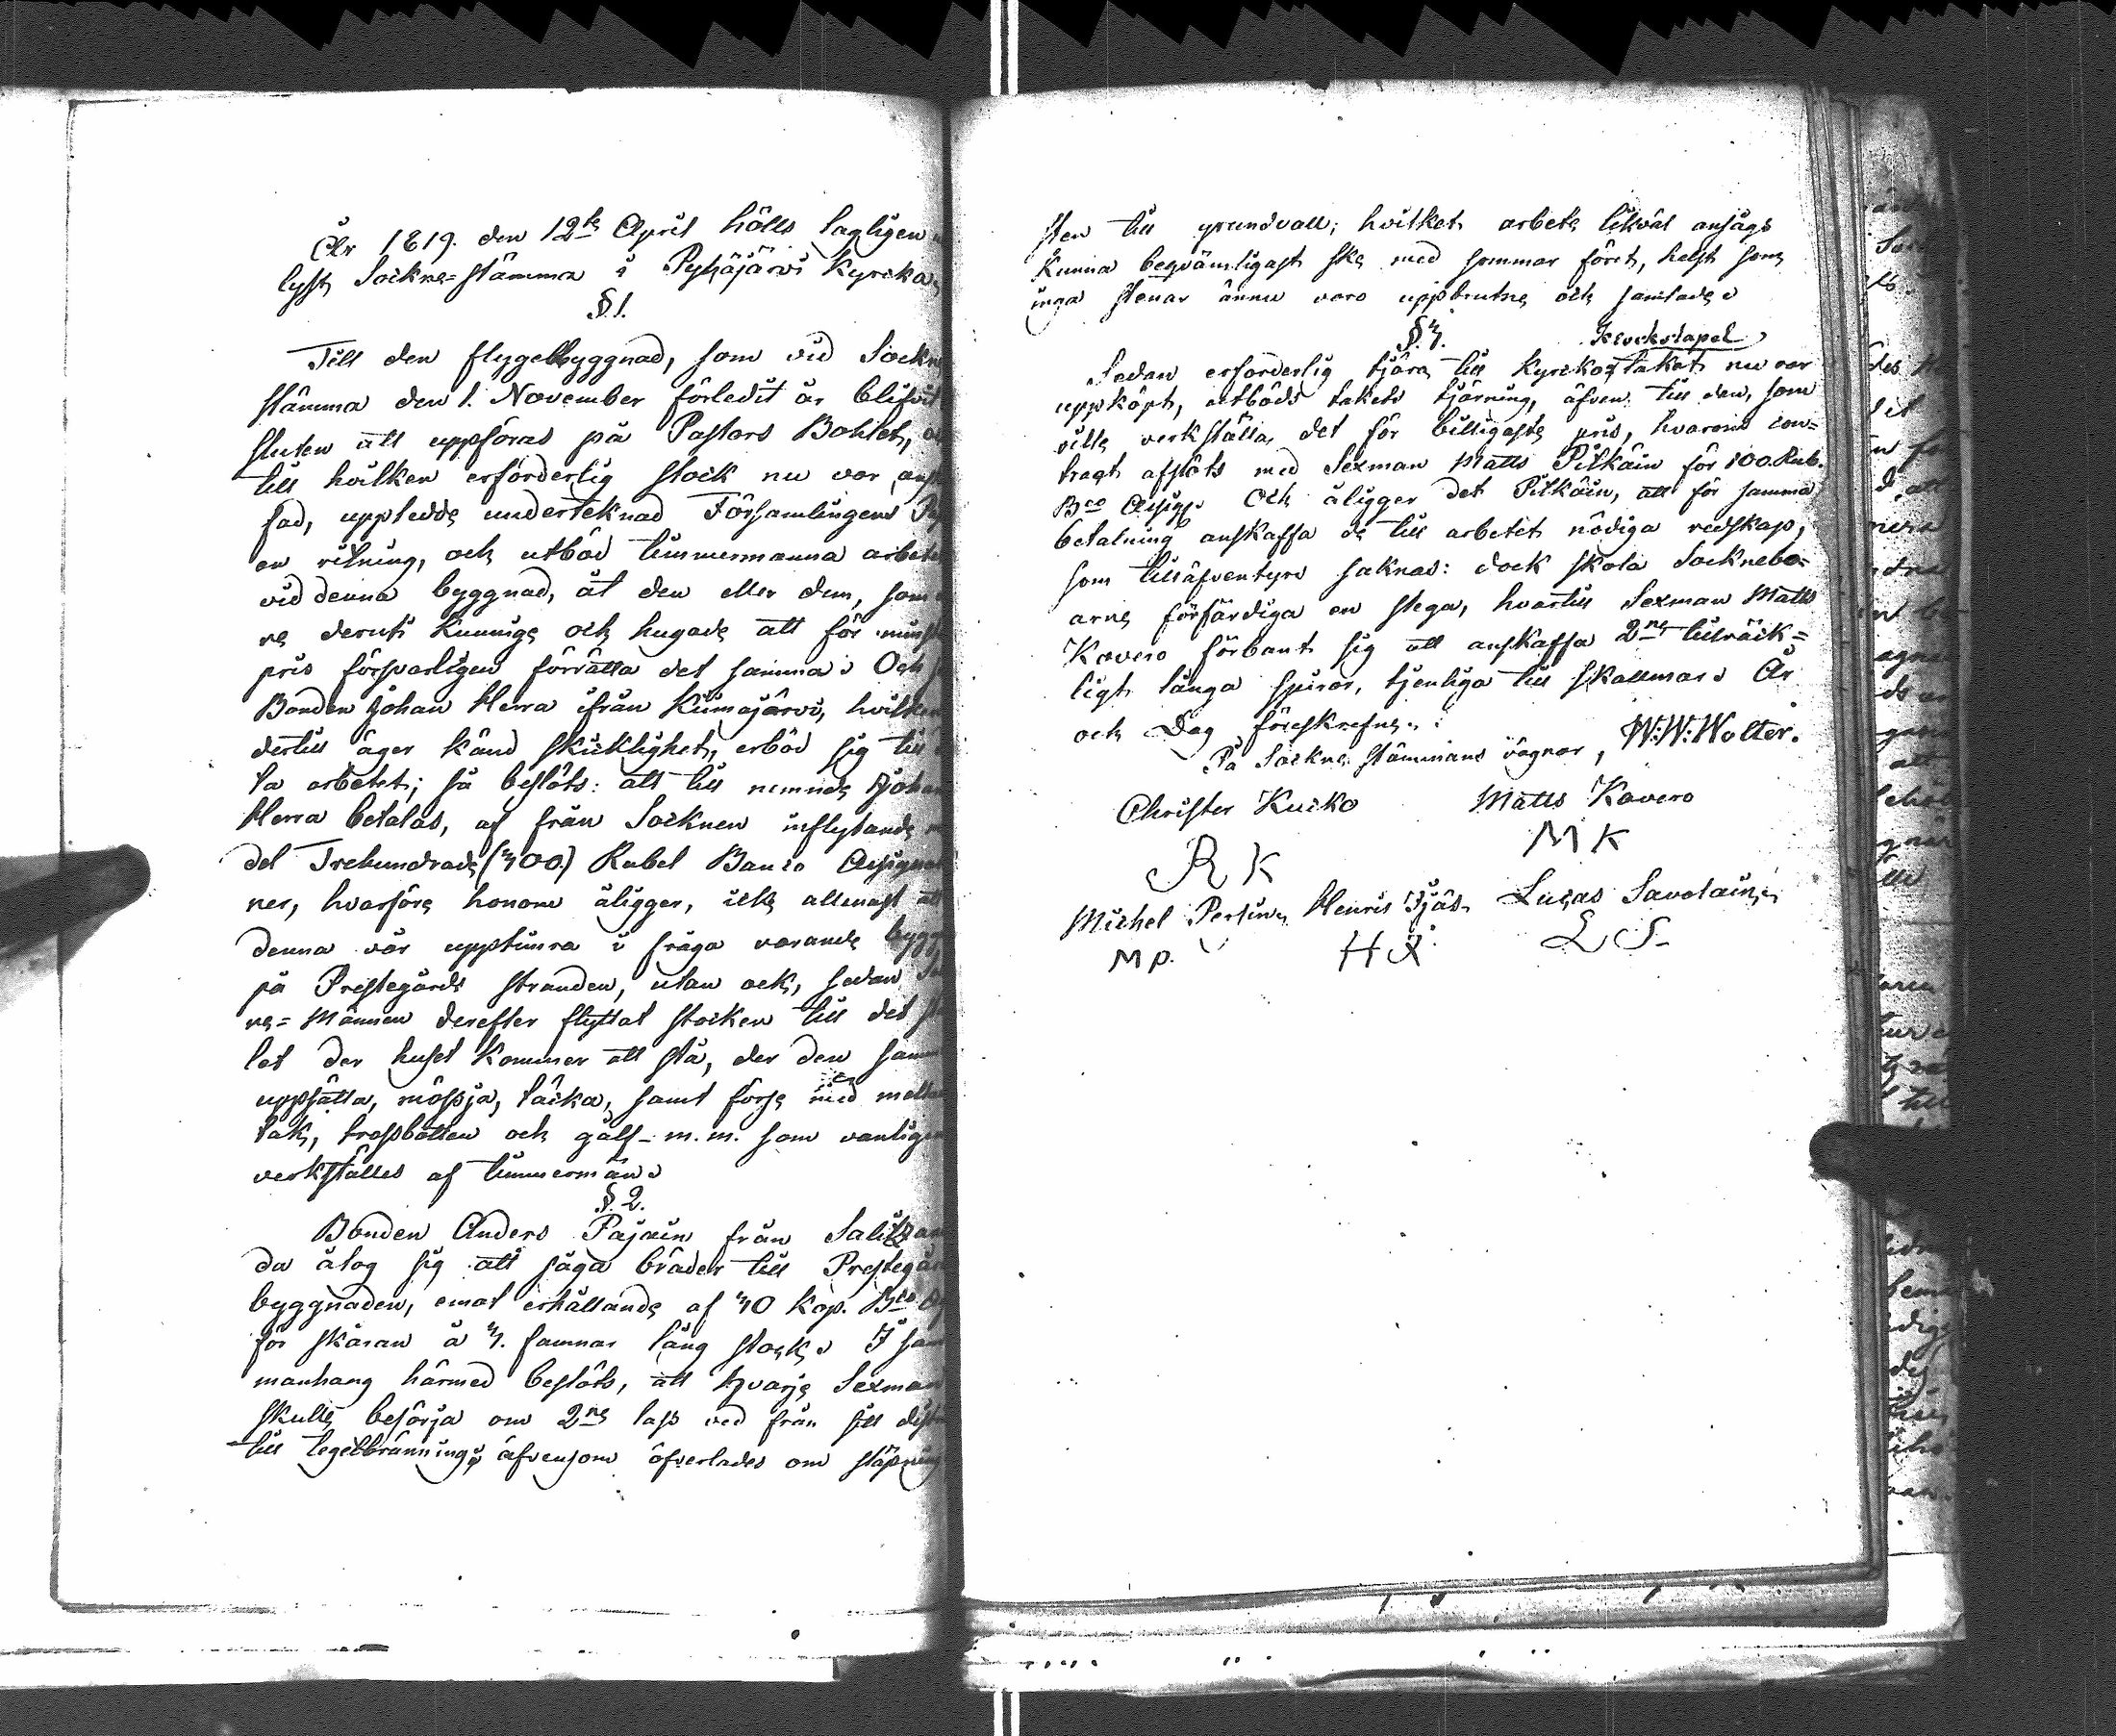 År 1819. den 12te April hölls lagligen
lyst Sockne-stämma i Pyhäjärvi Kyrcka,
§.1.
Till den flygelbyggnad, som vid Sockne
stämma den 1. November förledit år blifvit
sluten att uppföras på Pastors Bohlet,
till hvilken erforderlig stock nu var
fad, uppledde underteknad Församlingens
en ritning, och utböd timmermanna arbete
vid denna byggnad, åt den eller dem, som
re deruti kunnige och hugade att för minsta
pris försvarligen förrätta det samma. Och
Bonden Johan Herra ifrån Kiimajärvi, hvilken
dertill äger känd skicklighet, erböd sig till
ta arbetet; så beslöts: att till nemnde Johan
Herra betalas, af från Socknen inflytande
del Trehundrade (300.) Rubel Banco Assignat
ner, hvarföre honom åligger, icke allenast att
denna vår upptimra i fråga varande bygg
på Prestegårds stranden, utan ock, sedan
ne-Männen derefter flyttat stocken till det
let der huset kommer att stå, der den samma
uppsätta, mössja, täcka, samt förse med mellan
tak, trossbotten och gålf- m.m. som vanligen
verkställes af timmermän.
§.2.
Bonden Anders Pajain från
da åtog sig att såga bräder till Prestegårds
byggnaden, emot erhållande af 30 kop. Bco.
för skåran à 3. famnar lång stock. I sam
manhang härmed beslöts, att hvarje Sexman
skulle besörja om 2ne lass ved från sitt
till tegelbränning, äfvensom öfverlades om släpning
sten till grundvall; hvilket arbete likväl ansågs
kunna beqvämligast ske med sommar föret, helst som
inga stenar ännu voro uppbrutne och samlade.
§.3.
Klockstapel
Sedan erforderlig tjära till Kyrcko taket nu var
uppköpt, utböds takets tjärning, äfven till den, som
ville verkställa det för billigaste pris, hvarom con-
tract afslöts med Sexman Matts Pitkäin för 100. Rub.
Bco Assign. Och åligger det Pitkäin, att för samma
betalning anskaffa de till arbetet nödiga redskap,
som tilläfventyrs saknas: dock skola Sockneбo-
arne förfärdiga en stega, hvartill Sexman Matts
Kovero förbant sig att anskaffa 2ne tillräck-
ligt långa spiror, tjenliga till skallmar. År
och Dag föreskrefne.
På Sockne stämmans vägnar, W:W:Wolter.
Christer Kuiko Matts Kovero
R K M K
Michel Pertine, Henric Lucas Savolain,
M P. H L S